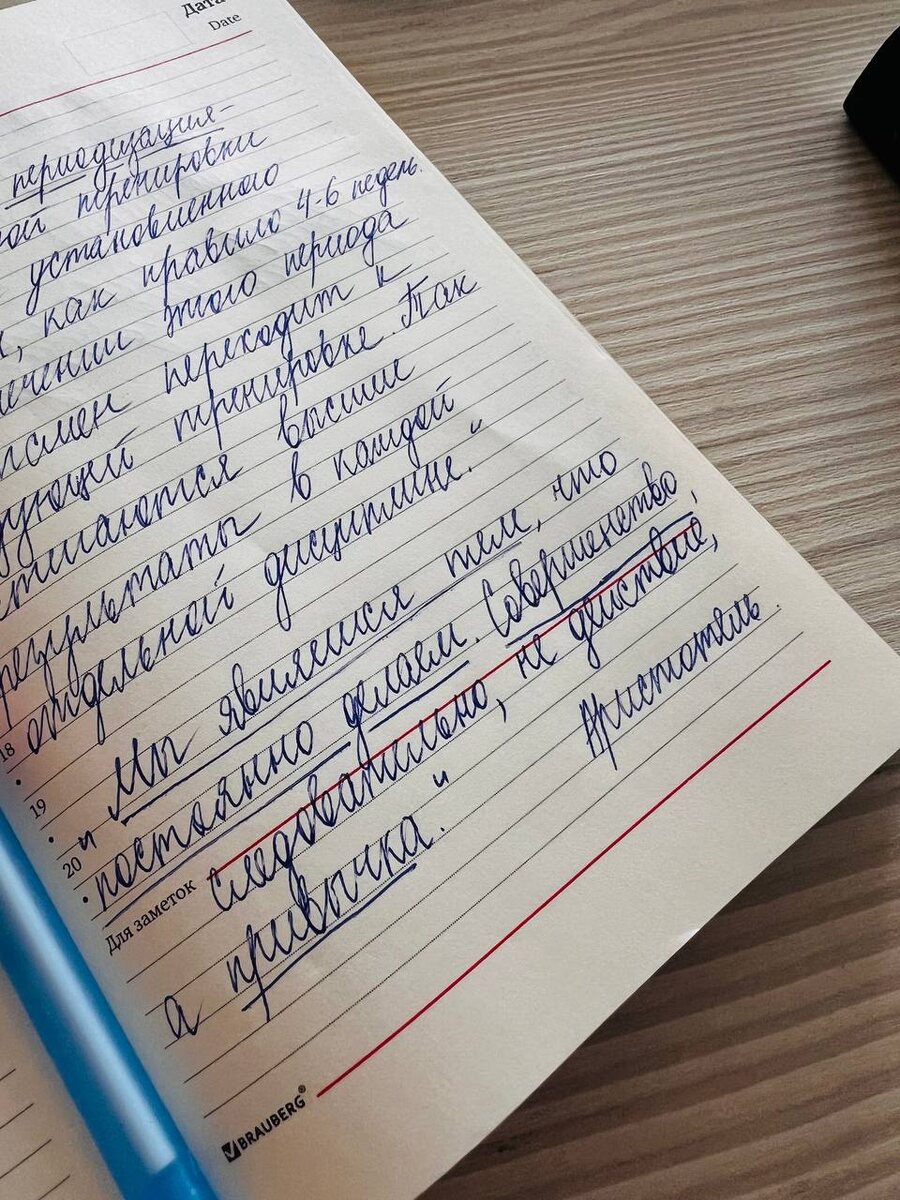 Дата
Date
периодизация-
перенировки
установленного
как правило 4-6 недель.
этого периода
переходит к
тренировке. Так
высшие
результаты в каждой
отдельной дисциплине."
18
" Мы являемся тем, что
19
постоянно делаем. Совершенство,
20
Для заметок
следовательно, не действие,
а привычка." Аристотель.
BRAUBERG®